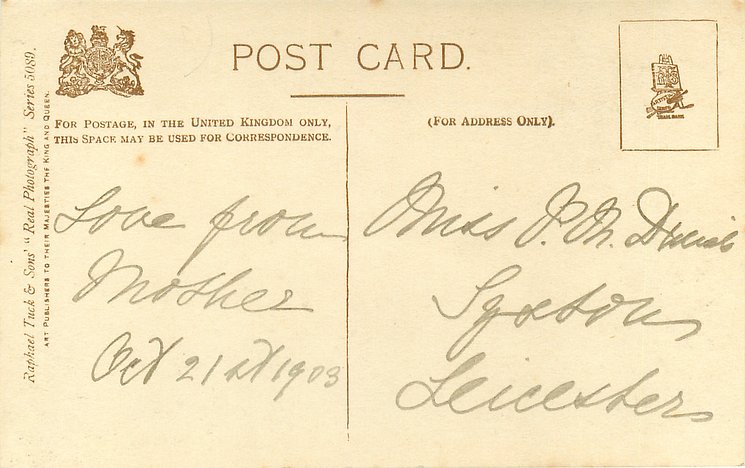 POST CARD.
FOR POSTAGE, IN THE UNITED KINGDOM ONLY,
THIS SPACE MAY BE USED FOR CORRESPONDENCE.
(FOR ADDRESS ONLY).
Raphael Tuck & Sons' "Real Photograph" Series 5089.
ART PUBLISHERS TO THEIR MAJESTIES THE KING AND QUEEN.
Love from
Mother
Oct 21st 1903
Miss P. M.
Syston
Leicester